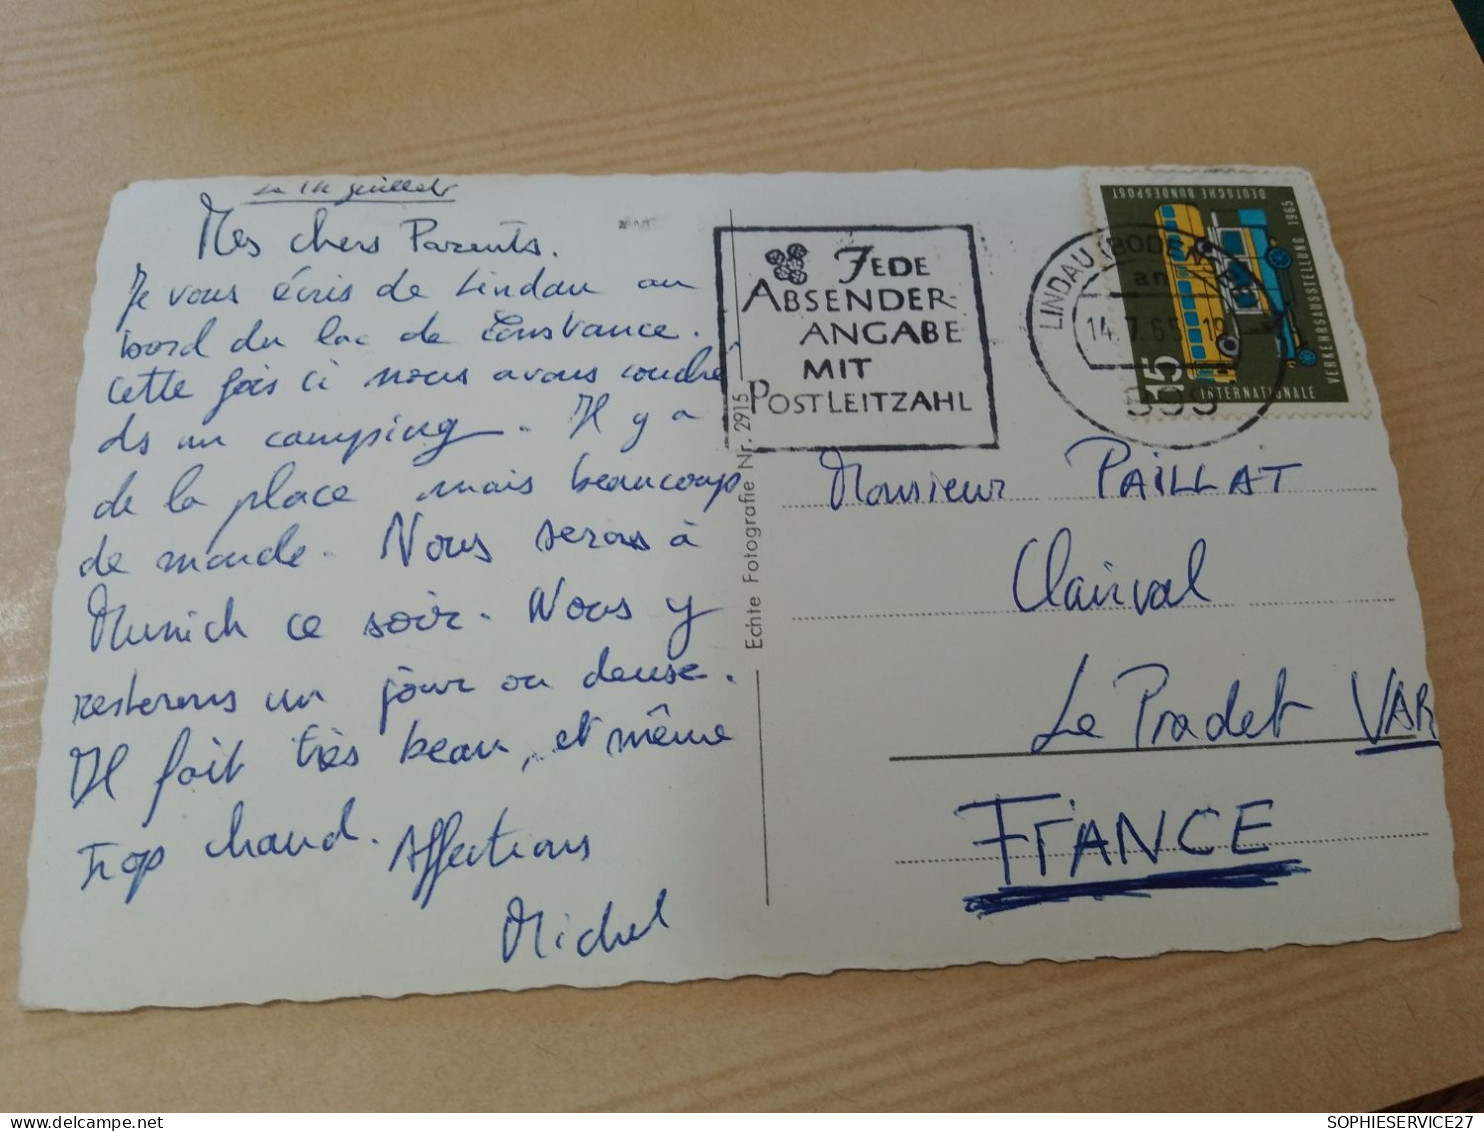 Le 14 juillet
Mes chers Parents.
Je vous écris de Lindau au
bord du lac de Constance.
cette fois ci nous avons couché
ds un camping. Il y a
de la place mais beaucoup
de monde. Nous serons à
Munich ce soir. Nous y
resterons un jour ou deux.
Il fait très beau, et même
trop chaud. Affections
Michel
Echte Fotografie Nr. 2915
JEDE
ABSENDER-
ANGABE
MIT
POSTLEITZAHL
LINDAU (BODENSEE)
14.7.65
899
DEUTSCHE BUNDESPOST
15
INTERNATIONALE
VERKEHRSAUSSTELLUNG 1965
Monsieur PAILLAT
Clairval
Le Pradet VAR
FRANCE
SOPHIESERVICE27